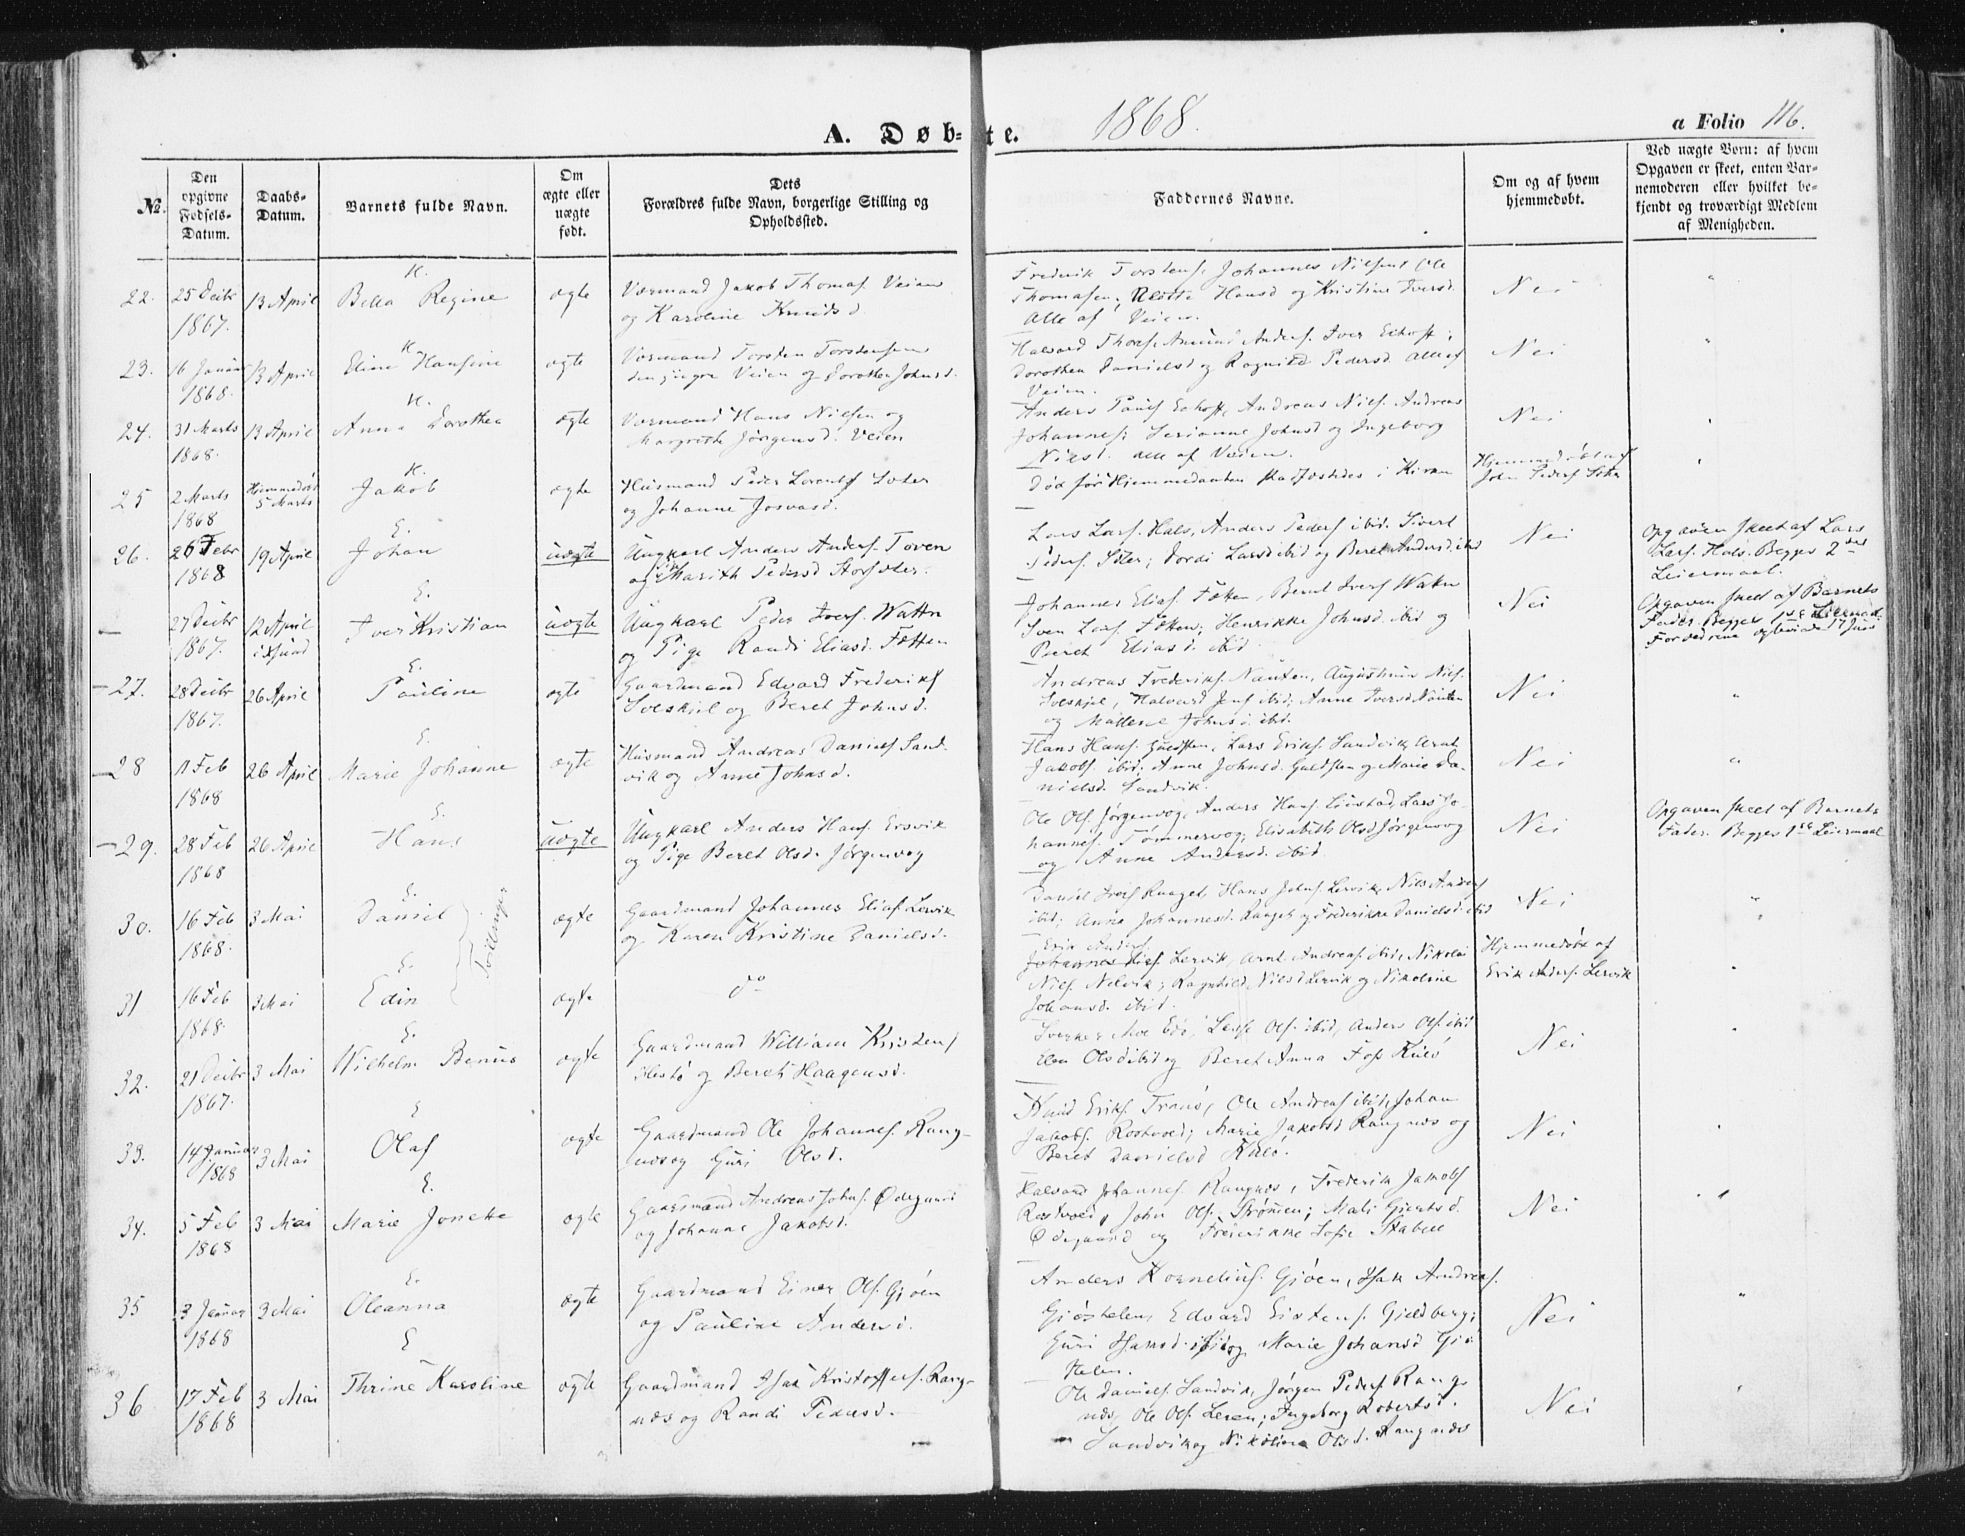 A. Døb-te.
1868.
a Folio 116.
No.
Den opgivne Fødsels-Datum.
Daabs-Datum.
Barnets fulde Navn.
Om ægte eller uægte født.
Dets Forældres fulde Navn, borgerlige Stilling og Opholdssted.
Faddernes Navne.
Om og af hvem hjemmedøbt.
Ved uægte Børn: af hvem Opgaven er skeet, enten Barnemoderen eller hvilket bekjendt og troværdigt Medlem af Menigheden.
22. 25 Decbr 1867. 13 April K. Bella Regine ægte
Værmand Jakob Thomas. Veien
og Karoline Knudsd.
Frederik Torstens. Johannes Nielsen Ole
Thomasen, Hansd og Kristine Iversd.
Alle af Veien.
Nei "
23. 16 Januar 1868. 13 April K. Eline Hansine ægte
Værmand Torsten Torstensen
den yngre Veien og Dorothea Johnsd.
Halvard Thors. Amund Anders. Iver Eches.;
Dorothea Danielsd og Ragnild Pedersd. Alle af
Veien.
Nei "
24. 31 Marts 1868. 13 April K. Anna Dorothea ægte
Værmand Hans Nielsen og
Margreth Jørgensd. Veien
Anders Pauls Andreas Niels. Andreas
Johannes; Serianne Johnsd og Ingeborg
Nielsd. alle af Veien.
Nei
25 2 Marts 1868 Hjemmedøbt 5 Marts K. Jakob ægte
Husmand Peder Lorents Sæter
og Johanne Josvasd.
Død før Hjemmedaaben stadfæstedes i Kirken
Hjemmedøbt af
John Peders Sæter
26. 26 Febr 1868 19 April E. Johan uægte
Ungkarl Anders Anders. Toven
og Marith Pedersd Storsæter.
Lars Lars. Hals, Anders Peders ibid. Sivert
Peders. Sæter; Dordi Larsd ibid og Beret Andersd. ibid
Nei
Opgaven skeet af Lars
Lars. Hals. Begges 2det
Leiermaal.
— 27 Decbr 1867. 12 April E. Iver Kristian uægte
Ungkarl Peder Ivers. Wattn
og Pige Randi Eliasd. Fætten
Johannes Elias. Fætten, Bernt Ivers Watn
Sven Lars. Fætten; Henrikke Johnsd. ibid og
Beret Eliasd. ibid
Nei
Opgaven skeet af Barnets
Fader. Begges 1ste Leiermaal.
— 27. 28 Decbr 1867. 26 April E. Pauline ægte
Gaardmand Edvard Frederiks
Solskjel og Beret Johnsd.
Andreas Frederiks. Nauten, Augustinus Niels.
Solskjel, Halvard Jens ibid; Anne Iversd Nauten
og Mallene Johnsd. ibid.
Nei "
— 28 11 Feb 1868 26 April E. Marie Johanne ægte
Husmand Andreas Daniels Sand-
vik og Anne Johnsd.
Hans Hans. Guldsten, Lars Eriks. Sandvik Arnt
Jakobs. ibid; Anne Johnsd. Guldsten og Marie Da-
nielsd. Sandvik.
Nei "
— 29. 28 Feb 1868 26 April E. Hans uægte
Ungkarl Anders Hans. Ersvik
og Pige Beret Olsd. Jørgenvog
Ole Ols. Jørgenvog, Anders Hans. Lars Jo-
hannes. Tømmervog; Elisabeth Olsd Jørgenvog
og Anne Andersd. ibid.
Nei
Opgaven skeet af Barnets
Fader. Begges 1ste Leiermaal
30. 16 Feb 1868. 3 Mai E. Daniel ægte
Tvillinge
Gaardmand Johannes Elias. Lervik
og Karen Kristine Danielsd.
Daniel Ivers Raaget, Hans Johns. Lervik, Niels Anders
ibid; Anne Johannesd. Raaget og Frederikke Danielsd. ibid
Nei "
31 16 Feb 1868. 3 Mai E. Edin ægte
do
Erik Anders.
Johannes Elias Lervik, Arnt Andreas. ibid, Nikolai
Niels. Nelvik; Ragnhild Nielsd Lervik og Nikoline
Johansd. ibid.
Hjemmedøbt af
Erik Anders. Lervik
32. 21 Decbr 1867. 3 Mai E. Wilhelm Benus ægte
Gaardmand William Kristens
og Beret Haagensd.
Sverker Moe Edø, Ols. ibid, Anders Ols. ibid
Ellen Olsd ibid og Beret Anna Foss Kulø
Nei
33. 14 Januar 1868 3 Mai E Olaf ægte
Gaardmand Ole Johannes. Rang-
næs og Guri Olsd.
Knud Eriks. Ole Andreas ibid, Johan
Jakobs. Rostvoed; Marie Jakobsd Rangnæs og
Beret Danielsd Kulø.
Nei
34. 5 Feb 1868 3 Mai E. Marie Jonette ægte
Gaardmand Andreas Johns. Ødegaard
og Johanne Jakobsd.
Halvard Johannes. Rangnæs, Frederik Jakobs
Rostvoed, John Ols. Strømen; Mali Gjertsd.
Ødegaard og Frederikke Sofie Stabell
Nei
35 3 Januar 1868 3 Mai E. Oleanna ægte
Gaardmand Einar Ols. Gjøen
og Pauline Andersd.
Anders Kornelius. Gjøen, Isak Andreas.
Gjøstelen, Edvard Eistens. Gjeldberg;
Guri Isaksd. ibid og Marie Johansd Gjø-
stelen.
Nei "
36 17 Feb 1868 3 Mai E Thrine Karoline ægte
Gaardmand Isak Kristoffers. Rang-
næs og Randi Pedersd.
Ole Daniels. Sandvik, Jørgen Peders Rang-
næs, Ole Ols. Leren; Ingeborg Robertsd.
Sandvik og Nikoline Olsd. Rangnæs
Nei